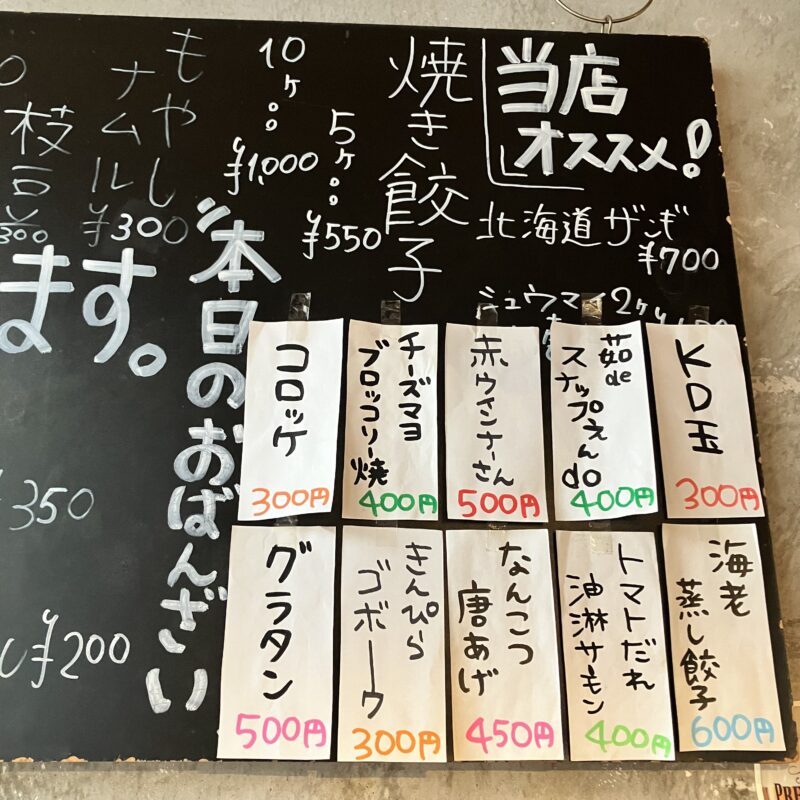 当店
オススメ!
北海道ザンギ
¥700
焼き餃子
5ヶ。。
¥550
10ヶ。。
¥1,000
もやし
ナムル
¥300
枝豆
¥300
ます。
350
¥200
本日のおばんざい
KO玉
300円
茹de
スナップえん
do
400円
赤ウインナーさん
500円
チーズマヨ
ブロッコリー焼
400円
コロッケ
300円
海老
蒸し餃子
600円
トマトだれ
油淋サーモン
400円
なんこつ
唐あげ
450円
きんぴら
ゴボーウ
300円
グラタン
500円